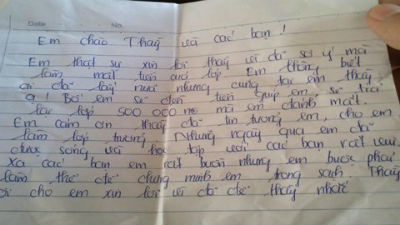 Date No.
Em chào Thầy và các bạn!
Em thật sự xin lỗi thầy vì đã sơ ý mà
làm mất tiền quỹ lớp. Em không biết
ai đã lấy nữa nhưng cũng tại em thầy
ạ. Bố em sẽ đến tiền giúp em sẽ trả
lại lớp 500 000 mà em đánh mất.
Em cảm ơn thầy đã tin tưởng em, cho em
làm lớp trưởng. Những ngày qua em đã
được sống và học tập với các bạn rất vui
Xa các bạn em rất buồn nhưng em buộc phải
làm thế để chứng minh em trong sạch. Thầy
cho em xin lỗi vì đã để thầy nhé